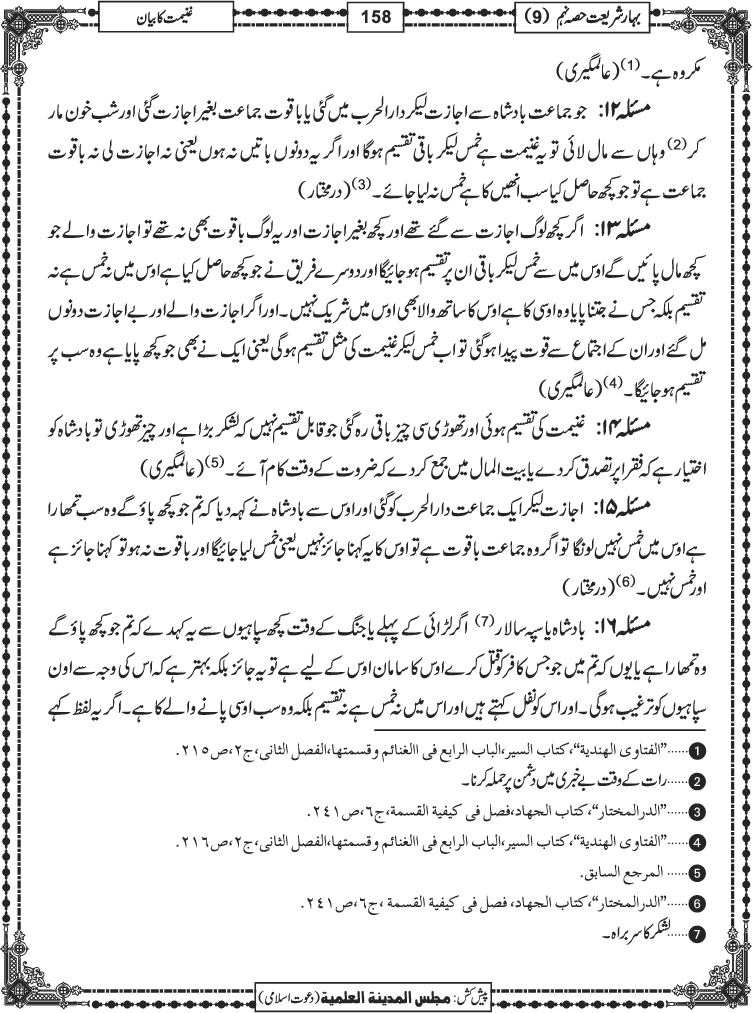 بہارِ شریعت حصہ نہم (9)
158
غنیمت کا بیان
مکروہ ہے۔(1) (عالمگیری)
مسئلہ ۱۲: جو جماعت بادشاہ سے اجازت لیکر دارالحرب میں گئی یا با قوت جماعت بغیر اجازت گئی اور شب خون مار
کر(2) وہاں سے مال لائی تو یہ غنیمت ہے خمس لیکر باقی تقسیم ہوگا اور اگر یہ دونوں باتیں نہ ہوں یعنی نہ اجازت لی نہ باقوت
جماعت ہے تو جو کچھ حاصل کیا سب انھیں کا ہے خمس نہ لیا جائے۔(3) (درمختار)
مسئلہ ۱۳: اگر کچھ لوگ اجازت سے گئے تھے اور کچھ بغیر اجازت اور یہ لوگ باقوت بھی نہ تھے تو اجازت والے جو
کچھ مال پائیں گے اوس میں سے خمس لیکر باقی ان پر تقسیم ہو جائیگا اور دوسرے فریق نے جو کچھ حاصل کیا ہے اوس میں نہ خمس ہے نہ
تقسیم بلکہ جس نے جتنا پایا وہ اوسی کا ہے اوس کا ساتھ والا بھی اوس میں شریک نہیں۔ اور اگر اجازت والے اور بے اجازت دونوں
مل گئے اور ان کے اجتماع سے قوت پیدا ہوگئی تو اب خمس لیکر غنیمت کی مثل تقسیم ہوگی یعنی ایک نے بھی جو کچھ پایا ہے وہ سب پر
تقسیم ہو جائیگا۔(4) (عالمگیری)
مسئلہ ۱۴: غنیمت کی تقسیم ہوئی اور تھوڑی سی چیز باقی رہ گئی جو قابل تقسیم نہیں کہ لشکر بڑا ہے اور چیز تھوڑی تو بادشاہ کو
اختیار ہے کہ فقرا پر تصدق کردے یا بیت المال میں جمع کردے کہ ضرورت کے وقت کام آئے۔(5) (عالمگیری)
مسئلہ ۱۵: اجازت لیکر ایک جماعت دارالحرب کو گئی اور اوس سے بادشاہ نے کہہ دیا کہ تم جو کچھ پاؤ گے وہ سب تمھارا
ہے اوس میں خمس نہیں لونگا تو اگر وہ جماعت باقوت ہے تو اوس کا یہ کہنا جائز نہیں یعنی خمس لیا جائیگا اور باقوت نہ ہو تو کہنا جائز ہے
اور خمس نہیں۔(6) (درمختار)
مسئلہ ۱۶: بادشاہ یا سپہ سالار(7) اگر لڑائی کے پہلے یا جنگ کے وقت کچھ سپاہیوں سے یہ کہدے کہ تم جو کچھ پاؤ گے
وہ تمھارا ہے یا یوں کہ تم میں جو جس کافر کو قتل کرے اوس کا سامان اوس کے لیے ہے تو یہ جائز بلکہ بہتر ہے کہ اس کی وجہ سے اون
سپاہیوں کو ترغیب ہوگی۔ اور اس کو نفل کہتے ہیں اور اس میں نہ خمس ہے نہ تقسیم بلکہ وہ سب اوسی پانے والے کا ہے۔ اگر یہ لفظ کہے
1......"الفتاوى الهندية"،كتاب السير،الباب الرابع فى االغنائم و قسمتها،الفصل الثانى،ج۲،ص۲۱۵.
2......رات کے وقت بے خبری میں دشمن پر حملہ کرنا۔
3......"الدرالمختار"،كتاب الجهاد،فصل فى كيفية القسمة،ج٦،ص٢٤١.
4......"الفتاوى الهندية"،كتاب السير،الباب الرابع فى االغنائم و قسمتها،الفصل الثانى،ج۲،ص۲۱٦.
5......المرجع السابق.
6......"الدرالمختار"،كتاب الجهاد،فصل فى كيفية القسمة،ج٦،ص٢٤١.
7......لشکر کا سربراہ۔
پیش کش: مجلس المدينة العلمية (دعوت اسلامی)